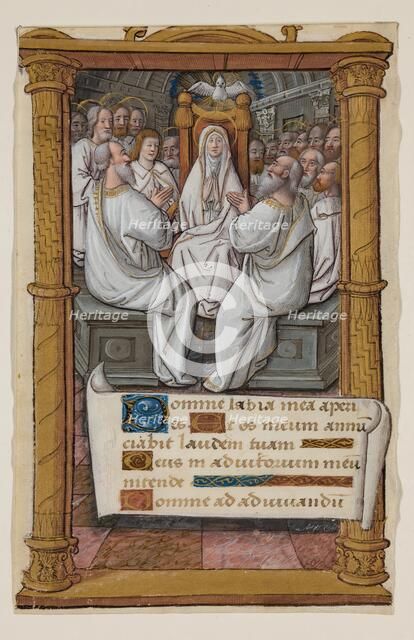 Heritage
Heritage
Heritage
Heritage
Heritage
Heritage
Domine labia mea aperi
es. Et os meum annu
ciabit laudem tuam
Deus in adiutorium meu
intende
Domine ad adiuuandu
Heritage
Heritage